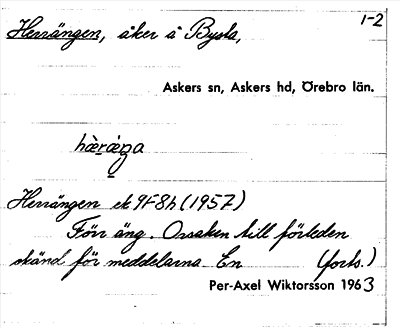 Herrängen, åker å Bysta,
1-2
Askers sn, Askers hd, Örebro län.
Herrängen ek 9F8h (1957)
Förr äng. Orsaken till förleden
okänd för meddelarna. En (forts.)
Per-Axel Wiktorsson 1963